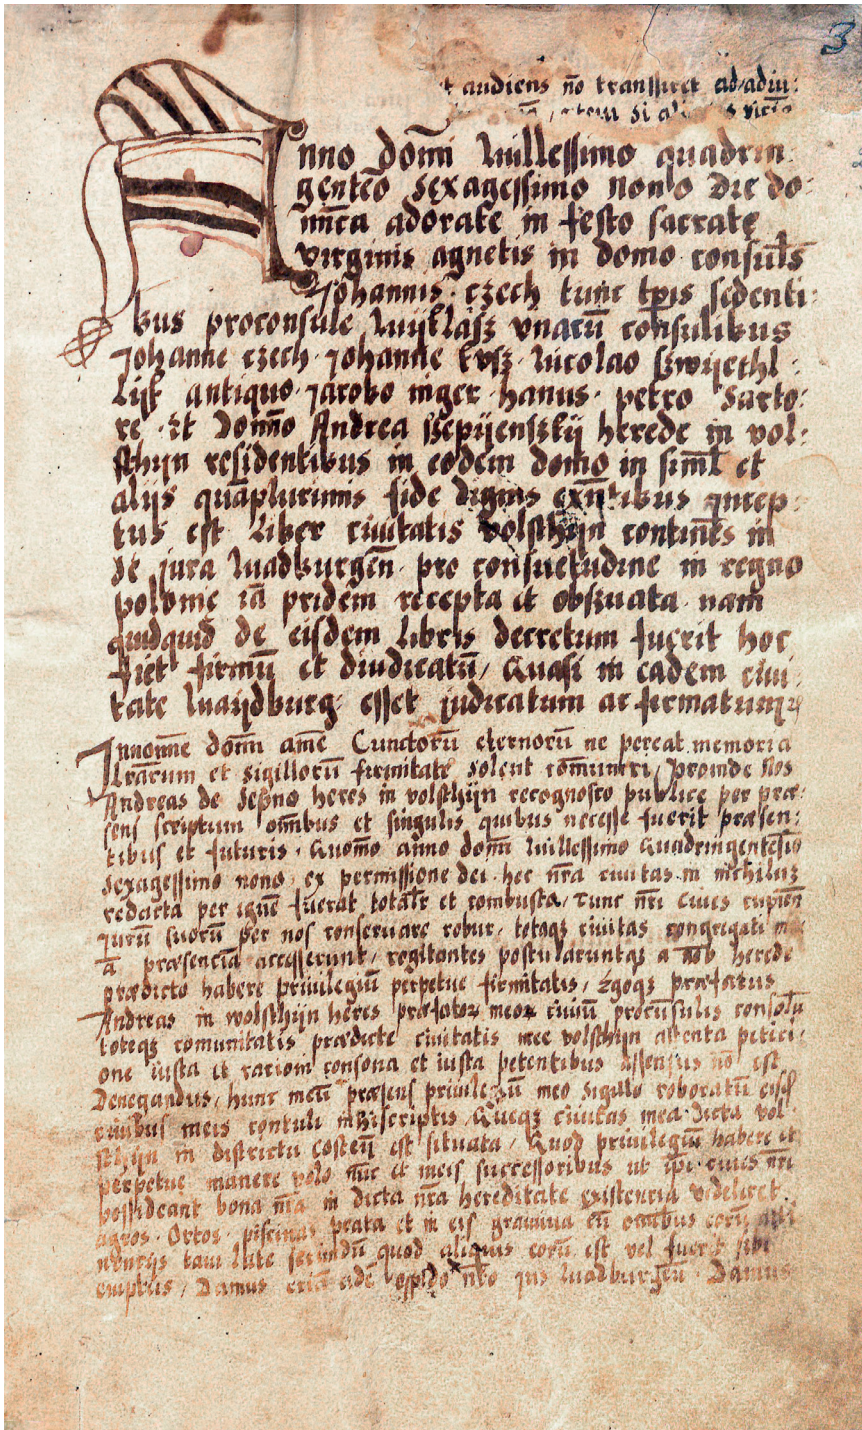 3
audiens nō transsiret ad adiu:
si
Anno domī Millessimo quadrin
genteō Sexagessimo nono Die do:
mīca adorate in festo sacrate
virginis agnetis in domo consul̄s
Johannis czech tunc tp̄is sedenti:
bus proconsule Mijklasz vnacū consulibus
Johanne czech · Johanne kvsz · Nicolao
antiquo · Jacobo · hanus · petro Sarto:
re · Et Domīno Andrea herede in vol:
sthijn residentibus in eodem domo in siml̄ et
alijs quāplurimis fide dignis exn̄tibus incep:
tus est Liber ciuitatis volsthijn continēs in
se jura Madburgen̄ · pro consuetudine in regno
polonie iā pridem recepta et obseruata · nam
quidquid de eisdem libris decretum fuerit hoc
fiet firmū et diudicatū / Quasi in eadem ciui:
tate Maijdburg: esset judicatum ac firmatum
Innomīe domī amē Cunctorū eternorū ne pereat memoria
Lrārum et sigillorū firmitate solent cōmuniri / Proinde Nos
Andreas de Sepno heres in volsthijn recognosco publice per præ:
sens scriptum omībus et singulis quibus necesse fuerit præsen:
tibus et futuris · Quomō anno domī Millessimo Quadringentesīo
Sexagessimo nono · ex permissione dei · hec nr̄a ciuitas in nichiluz
redacta per ignē fuerat total̄r et combusta / Tunc nr̄i Ciues cupien̄
jurū suorū per nos conseruare robur / totaqz ciuitas congregati
ā præsenciā accesserunt / rogitantes postularuntqz a nob̄ herede
prædicto habere priuilegiū perpetue firmitatis / Egoqz præfatus
Andreas in wolsthijn heres præfator meor ciuiū procūsulis consolū
totiqz comunitatis prædicte ciuitatis mee volsthijn attenta petici:
one iusta et racioni consona et iusta petentibus assensus nō est
Denegandus / hunc meū præsens priuilegiū meo sigillo roboratū eisdē
ciuibus meis contuli inhiscriptis / Queqz ciuitas mea dicta vol:
sthijn in districtu Costen̄ est situata / Quod priuilegiū habere et
perpetue manere volo nūc et meis successoribus ut ip̄i ciues nr̄i
possideant bona nr̄a in dicta nr̄a hereditate existencia videlicet
agros · Ortos · piscinas prata et in eis gramina cū omībus eorū
tam late secundū quod aliquis eorū est vel fuerit sibi
emptus / Damus eciā adē oppido nr̄o jus Madburgen̄ · Damus